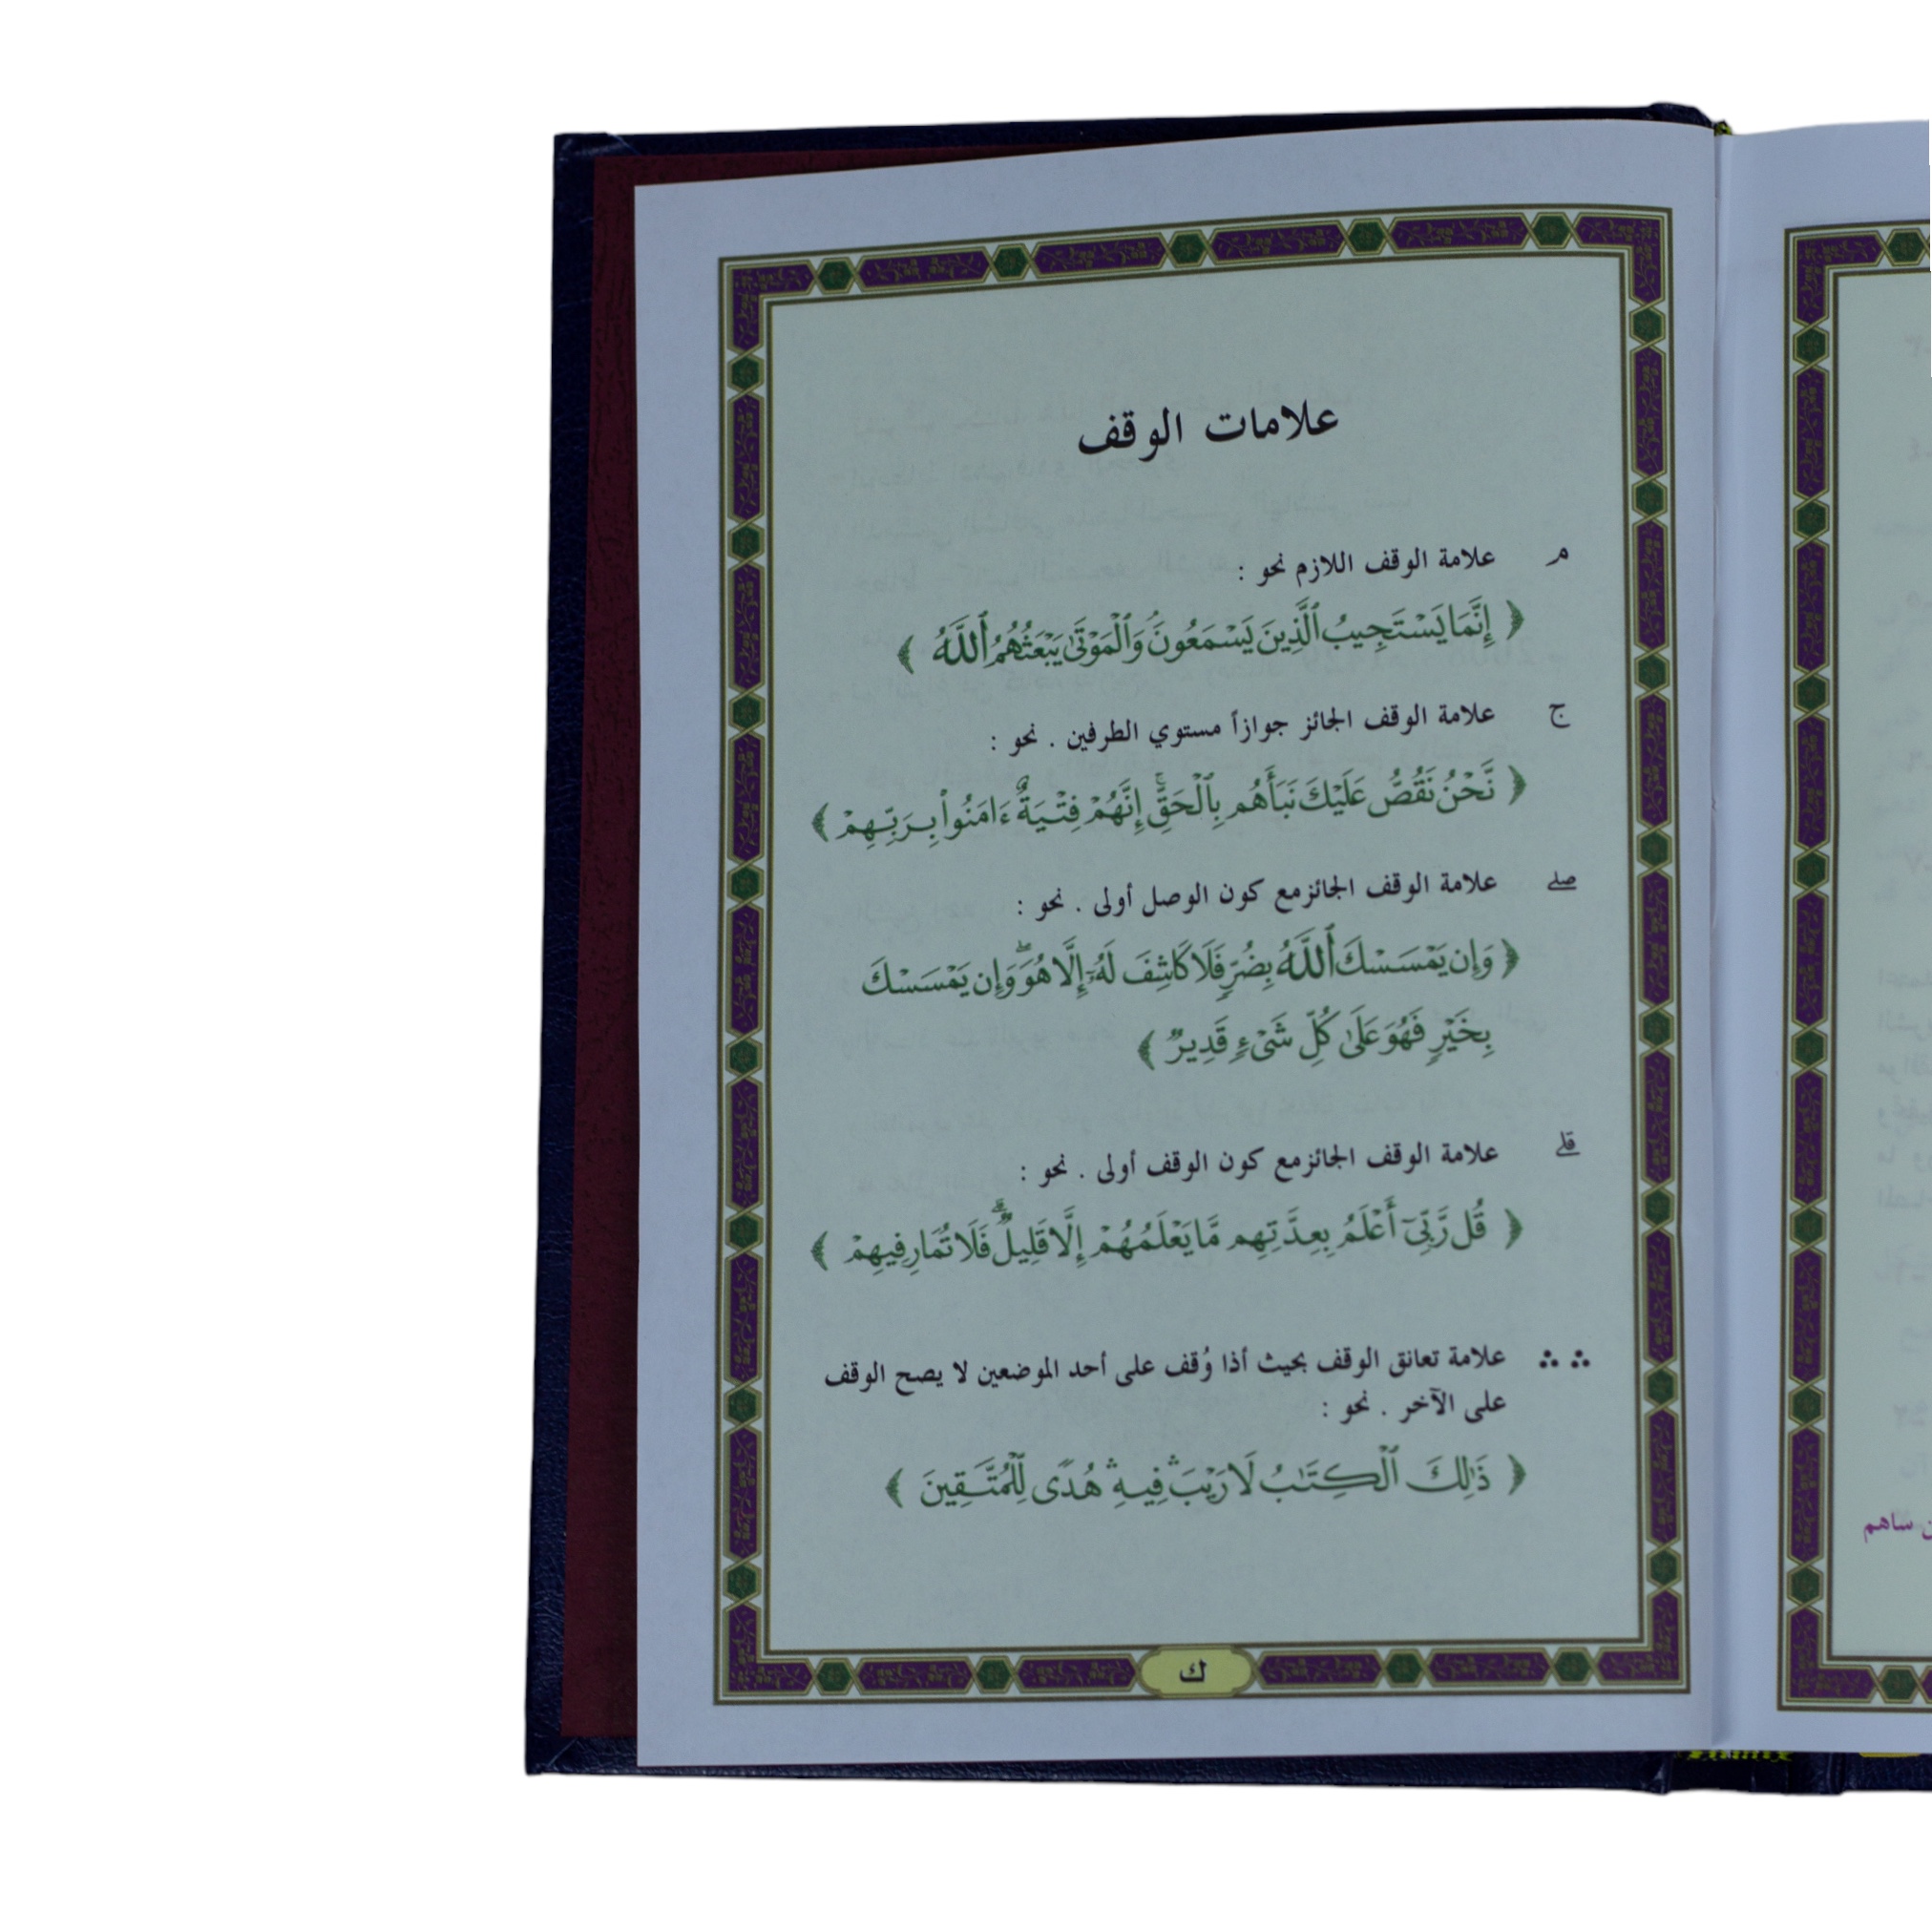 علامات الوقف
م علامة الوقف اللازم نحو :
﴿ إِنَّمَا يَسْتَجِيبُ ٱلَّذِينَ يَسْمَعُونَۘ وَٱلْمَوْتَىٰ يَبْعَثُهُمُ ٱللَّهُ ﴾
ج علامة الوقف الجائز جوازاً مستوي الطرفين . نحو :
﴿ نَّحْنُ نَقُصُّ عَلَيْكَ نَبَأَهُم بِٱلْحَقِّۚ إِنَّهُمْ فِتْيَةٌ ءَامَنُوا۟ بِرَبِّهِمْ ﴾
صلے علامة الوقف الجائز مع كون الوصل أولى . نحو :
﴿ وَإِن يَمْسَسْكَ ٱللَّهُ بِضُرٍّ فَلَا كَاشِفَ لَهُۥٓ إِلَّا هُوَۖ وَإِن يَمْسَسْكَ
بِخَيْرٍ فَهُوَ عَلَىٰ كُلِّ شَىْءٍ قَدِيرٌ ﴾
قلے علامة الوقف الجائز مع كون الوقف أولى . نحو :
﴿ قُل رَّبِّىٓ أَعْلَمُ بِعِدَّتِهِم مَّا يَعْلَمُهُمْ إِلَّا قَلِيلٌۗ فَلَا تُمَارِ فِيهِمْ ﴾
∴ ∴ علامة تعانق الوقف بحيث أذا وُقف على أحد الموضعين لا يصح الوقف
على الآخر . نحو :
﴿ ذَٰلِكَ ٱلْكِتَٰبُ لَا رَيْبَۛ فِيهِۛ هُدًى لِّلْمُتَّقِينَ ﴾
ك
ساهم